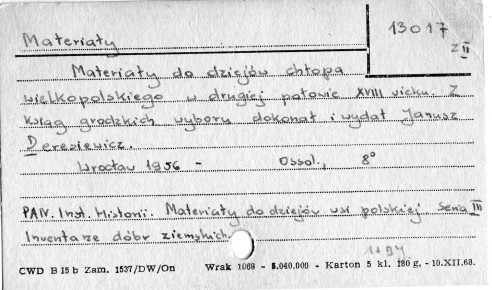 13017
Z II
Materiały
Materiały do dziejów chłopa
wielkopolskiego w drugiej połowie XVIII wieku. Z
ksiąg grodzkich wyboru dokonał i wydał Janusz
Deresiewicz.
Wrocław 1956 - Ossol., 8°
PAN. Inst. Historii. Materiały do dziejów wsi polskiej. Seria III
Inwentarze dóbr ziemskich.
CWD B 15 b Zam. 1537/DW/On Wrak 1068 - 5.040.000 - Karton 5 kl. 180 g. - 10.XII.68.